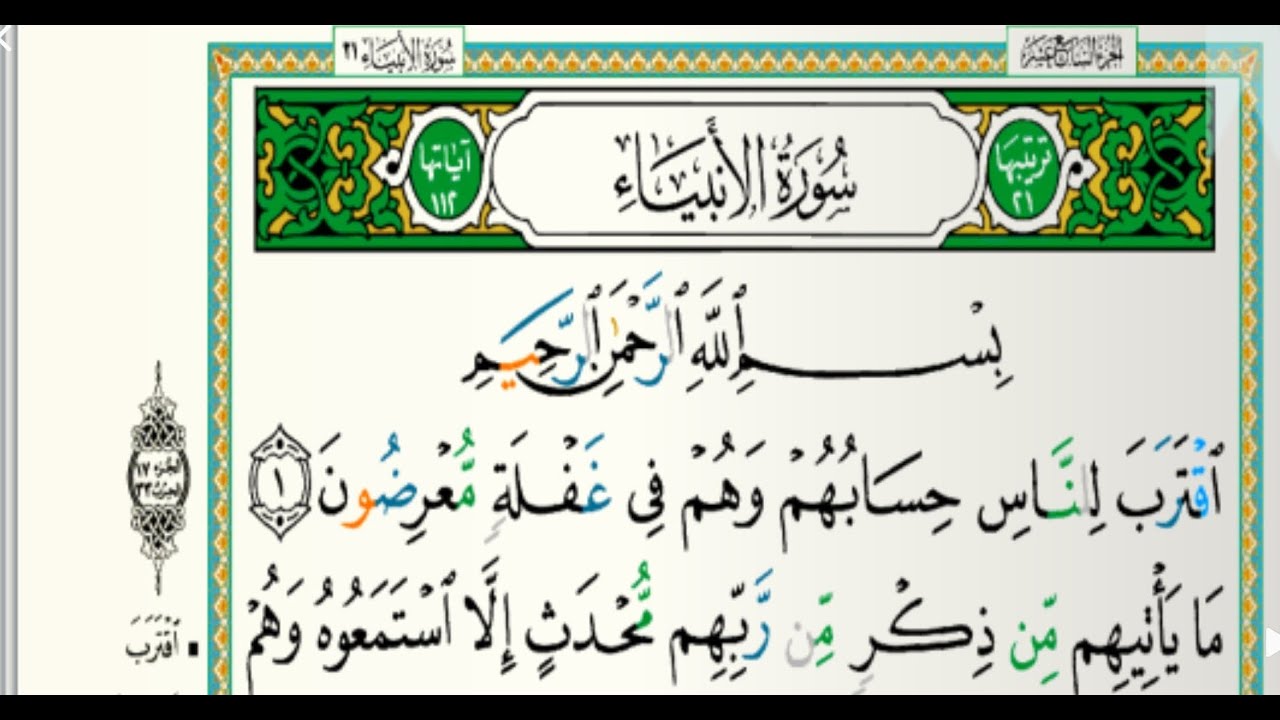 الجزء السابع عشر
سورة الأنبياء ٢١
ترتيبها
٢١
سُورَةُ الأَنبِيَاءِ
آياتها
١١٢
بِسْمِ ٱللَّهِ ٱلرَّحْمَٰنِ ٱلرَّحِيمِ
ٱقْتَرَبَ لِلنَّاسِ حِسَابُهُمْ وَهُمْ فِى غَفْلَةٍ مُّعْرِضُونَ ١
مَا يَأْتِيهِم مِّن ذِكْرٍ مِّن رَّبِّهِم مُّحْدَثٍ إِلَّا ٱسْتَمَعُوهُ وَهُمْ
الجزء ١٧
الحزب ٣٣
▪ ٱقْتَرَبَ